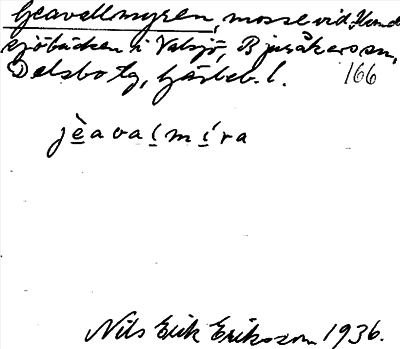 Geavellmyren, mosse vid Hund
sjöbäcken i Valsjö, Bjuråkers sn,
Delsbo tg, Gävleb. l. 166
jèavaímíra
Nils Erik Eriksson 1936.